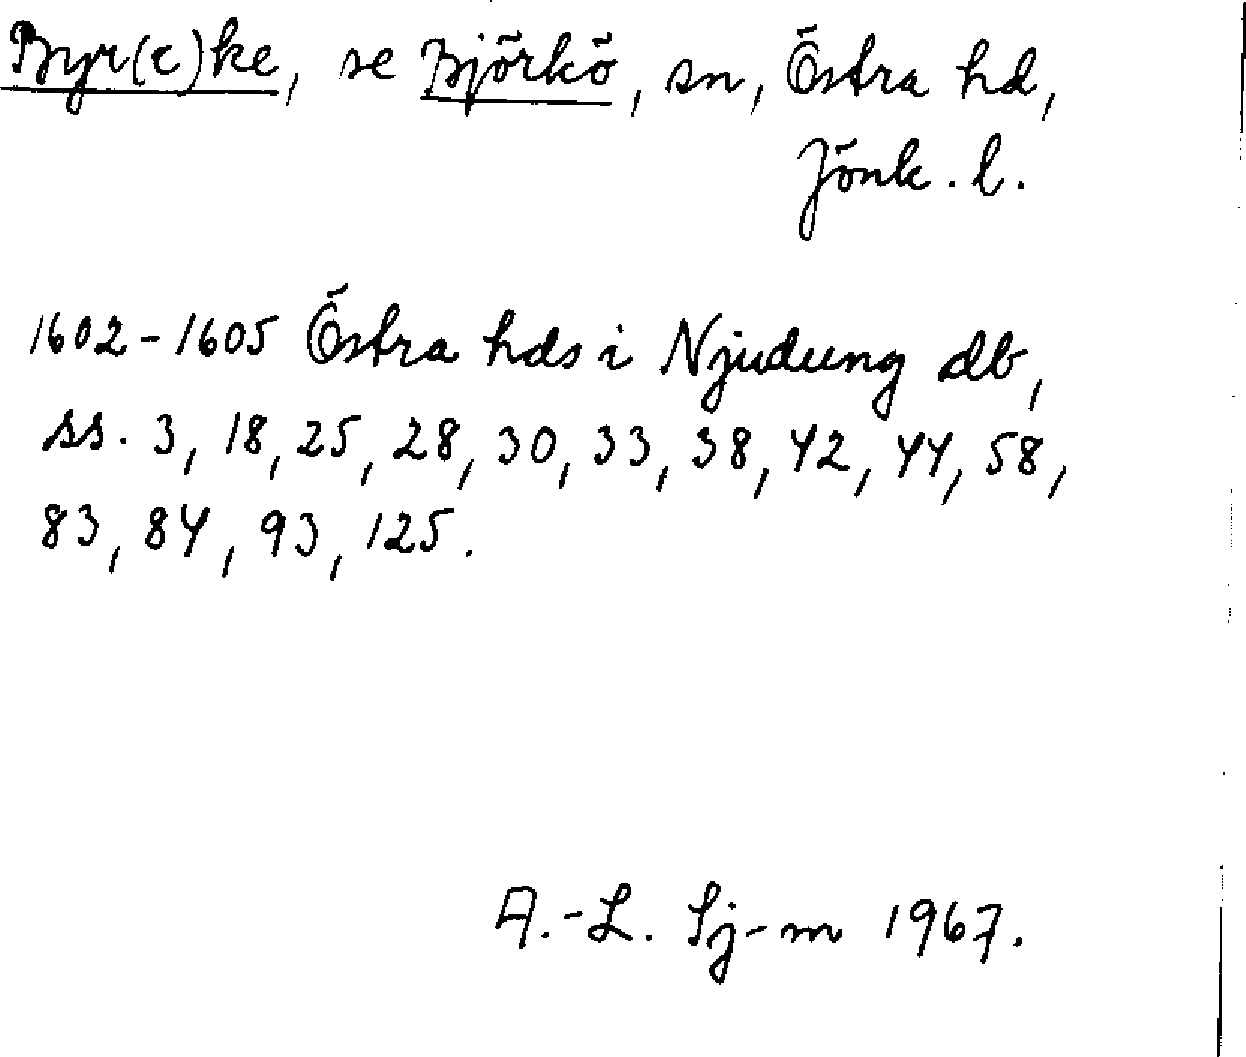 Byr(c)ke, se Björkö, sn, Östra hd,
Jönk. l.
1602-1605 Östra hds i Njudung db,
ss. 3, 18, 25, 28, 30, 33, 38, 42, 44, 58,
83, 84, 93, 125.
A.-L. Sj-m 1967.